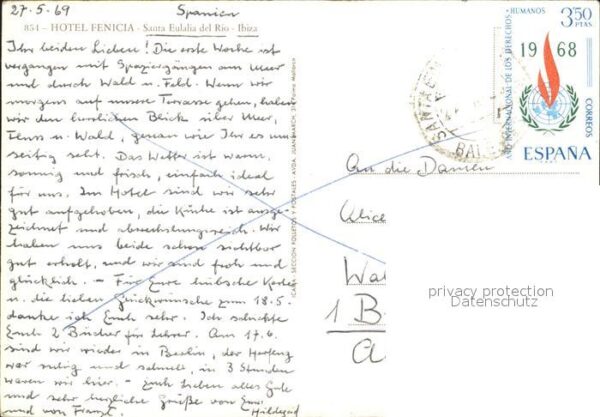 27.5.69 Spanien
854 - HOTEL FENICIA - Santa Eulalia del Rio - Ibiza
Ihr beiden Lieben! Die erste Woche ist
vergangen mit Spaziergängen am Meer
und durch Wald u. Feld. Wenn wir
morgens auf unsere Terrasse gehen, haben
wir den herrlichen Blick über Meer,
Fluss u. Wald, genau wie Ihr es um-
seitig seht. Das Wetter ist warm,
sonnig und frisch, einfach ideal
für uns. Im Hotel sind wir sehr
gut aufgehoben, die Küche ist ausge-
zeichnet und abwechslungsreich. Wir
haben uns beide schon sichtbar
gut erholt, und wir sind froh und
glücklich. - Für Eure hübsche Karte
u. die lieben Glückwünsche zum 18.5.
danke ich Euch sehr. Ich schickte
Euch 2 Bücher für Lehrer. Am 17.6.
sind wir wieder in Berlin, der Herflug
war ruhig und schnell, in 3 Stunden
waren wir hier. - Euch Lieben alles Gute
und sehr herzliche Grüße von Eurer
und von Franzl. Hildegard
AÑO INTERNACIONAL DE LOS DERECHOS HUMANOS
3,50
PTAS
1968
CORREOS
ESPAÑA
SANTA
BAL
An die Damen
Alice
Wa
1 B
privacy protection
Datenschutz